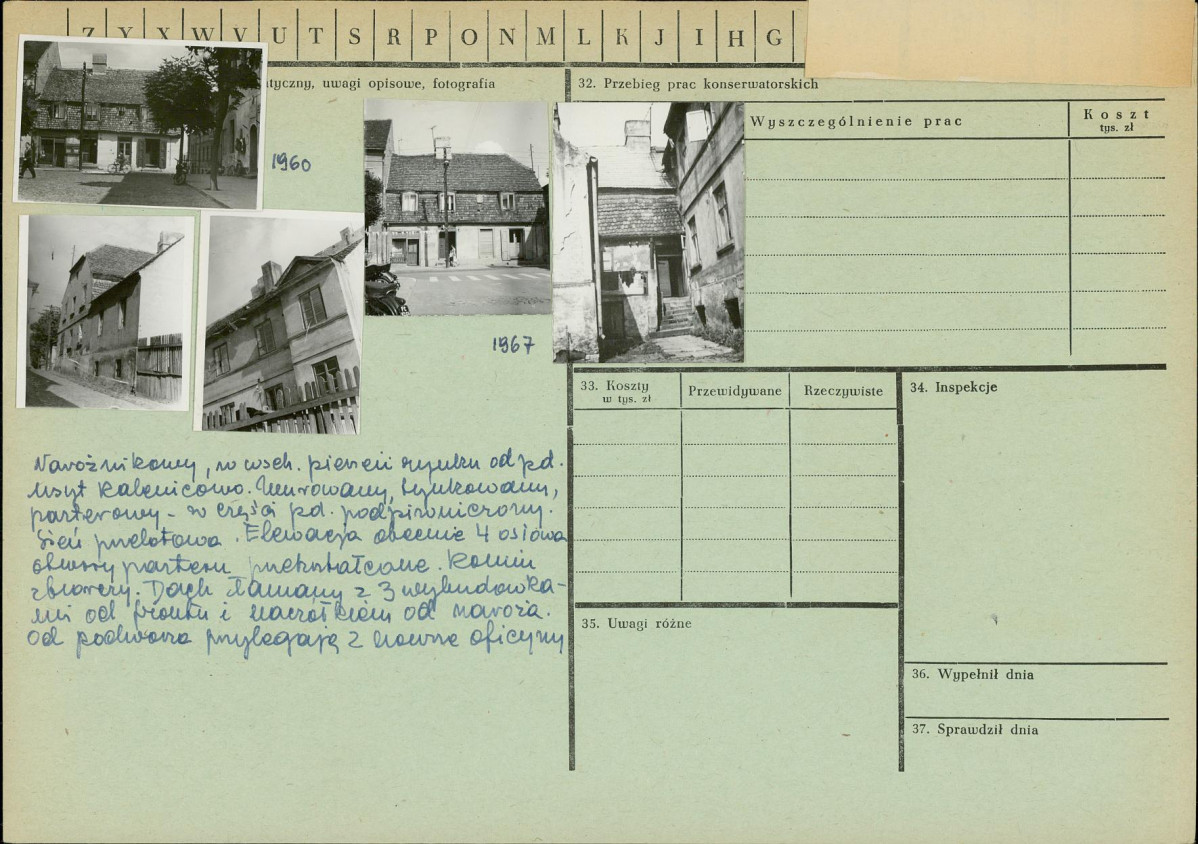 Z Y X W V U T S R P O N M L K J I H G
tyczny, uwagi opisowe, fotografia
32. Przebieg prac konserwatorskich
Wyszczególnienie prac
Koszt
tys. zł
1960
1967
33. Koszty
w tys. zł
Przewidywane
Rzeczywiste
34. Inspekcje
Narożnikowy, w wsch. pierzei rynku od pd.
usyt kalenicowo. Murowany, tynkowany,
parterowy – w części pd. podpiwniczony.
Sień przelotowa. Elewacja obecnie 4 osiowa
otwory parteru przekształcone. Komin
zbiorczy. Dach łamany z 3 wybudówka-
mi od frontu i naczółkiem od naroża.
Od podwórza przylegają 2 oficyny
35. Uwagi różne
36. Wypełnił dnia
37. Sprawdził dnia